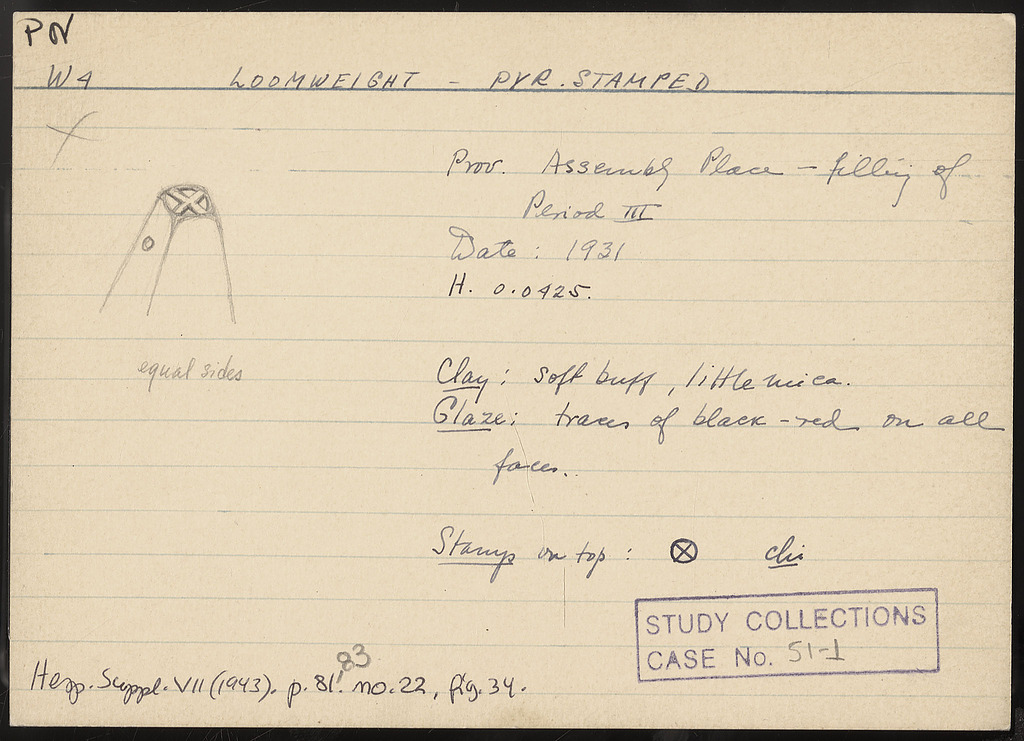 PN
W4 LOOMWEIGHT - PYR. STAMPED
Prov. Assembly Place - filling of
Period III
Date : 1931
H. 0.0425.
equal sides
Clay : soft buff, little mica.
Glaze : traces of black-red on all
faces.
Stamp on top : ⊗ chi
STUDY COLLECTIONS
CASE No. 51-1
83
Hesp. Suppl. VII (1943). p. 81. no. 22, fig. 34.